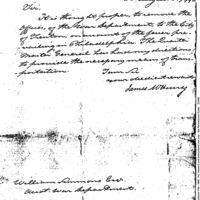 Sir,
It is thought proper to remove the
offices of the War department, to the City
of Trenton on account of the fever pre-
vailing in Philadelphia. The Quarter
Master General has had my directions
to provide the necessary means of trans-
portation.
I am Sir
your obedient servant
James McHenry
William Simmons Esqr.
Acct. War department.